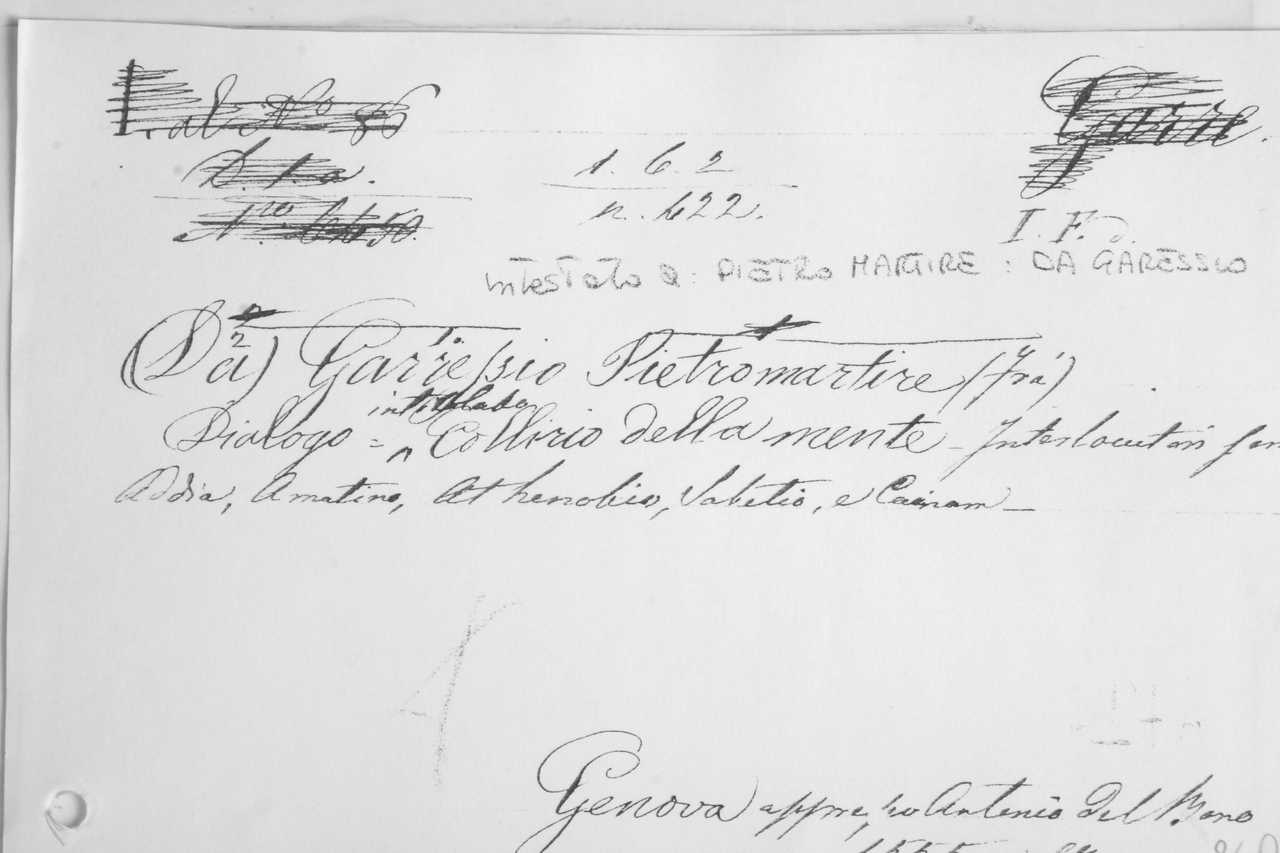 1. 6. 2
n. 622.
I. F.
intestato a: PIETRO MARTIRE: DA GARESSIO
(Da) Garressio Pietromartire (frà)
intitolato
Dialogo = Collirio della mente - Interlocutori
Addia, Amatino, Athenobio, Sabetio, e Cainam
Genova appresso Antonio Del Bono
1555